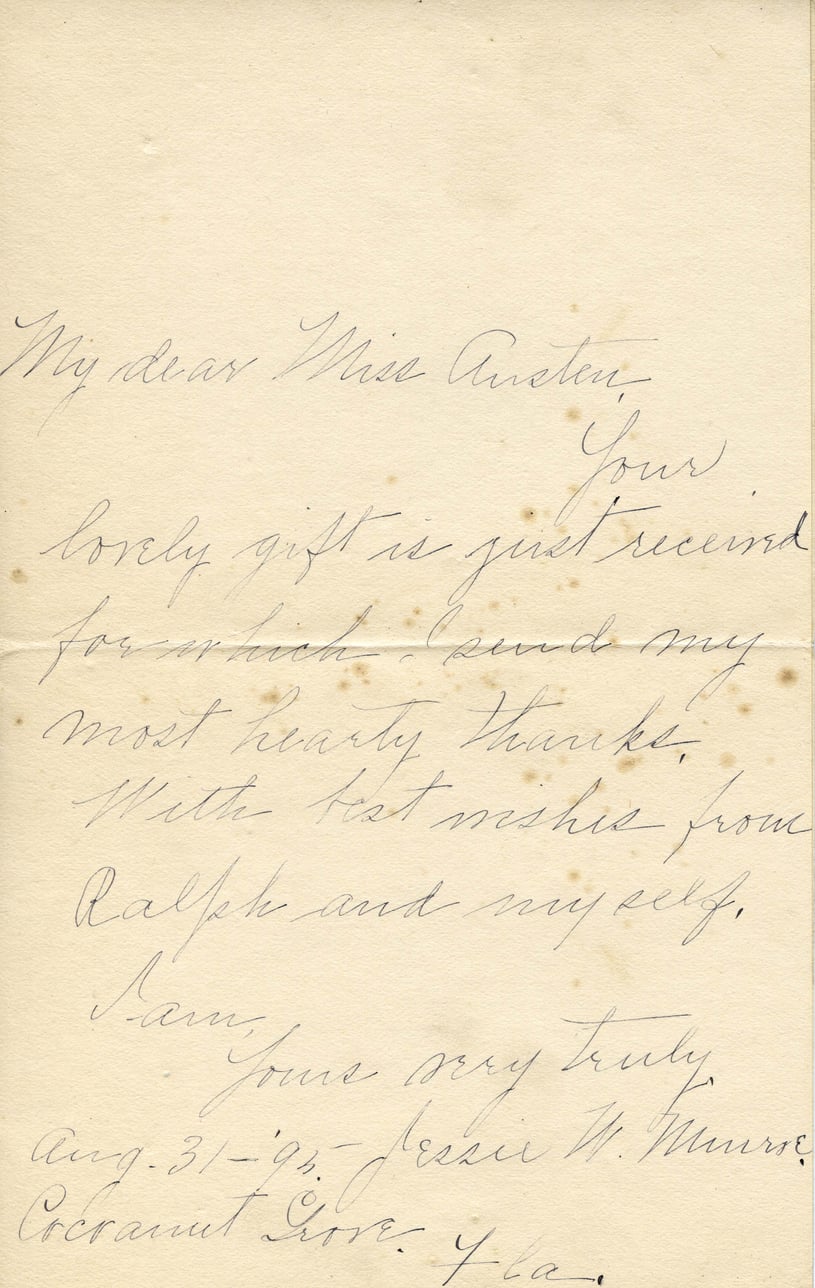 My dear Miss Austen,
Your
lovely gift is just received
for which I send my
most hearty thanks.
With best wishes from
Ralph and myself.
I am,
Yours very truly,
Aug. 31 - '95 Jessie W. Munroe.
Cocoanut Grove.
Fla.